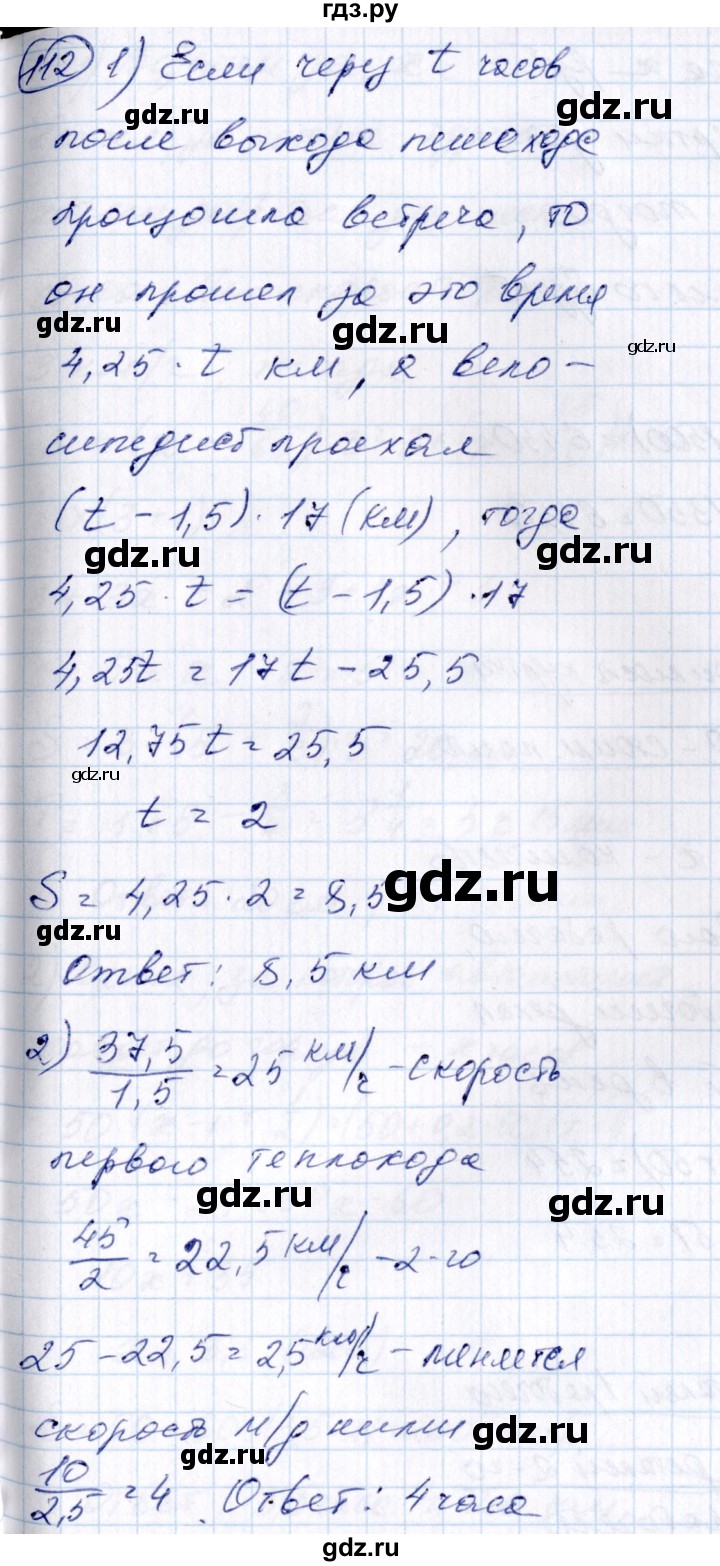 гдз.ру
112 1) Если через t часов
gdz.ru gdz.ru
после выхода пешехода
произошла встреча, то
он прошел за это время
gdz.ru gdz.ru gdz.ru
4,25 · t км, а вело-
сипедист проехал
(t - 1,5) · 17 (км), тогда
gdz.ru gdz.ru
4,25 · t = (t - 1,5) · 17
4,25t = 17t - 25,5
12,75t = 25,5
gdz.ru gdz.ru
t = 2
S = 4,25 · 2 = 8,5
gdz.ru gdz.ru
Ответ: 8,5 км
2) 37,5/1,5 = 25 км/ч - скорость
gdz.ru gdz.ru
первого теплохода
gdz.ru gdz.ru
45/2 = 22,5 км/ч - 2-го
25 - 22,5 = 2,5 км/ч - меняется
скорость м/д ними
gdz.ru gdz.ru
10/2,5 = 4. Ответ: 4 часа
gdz.ru gdz.ru